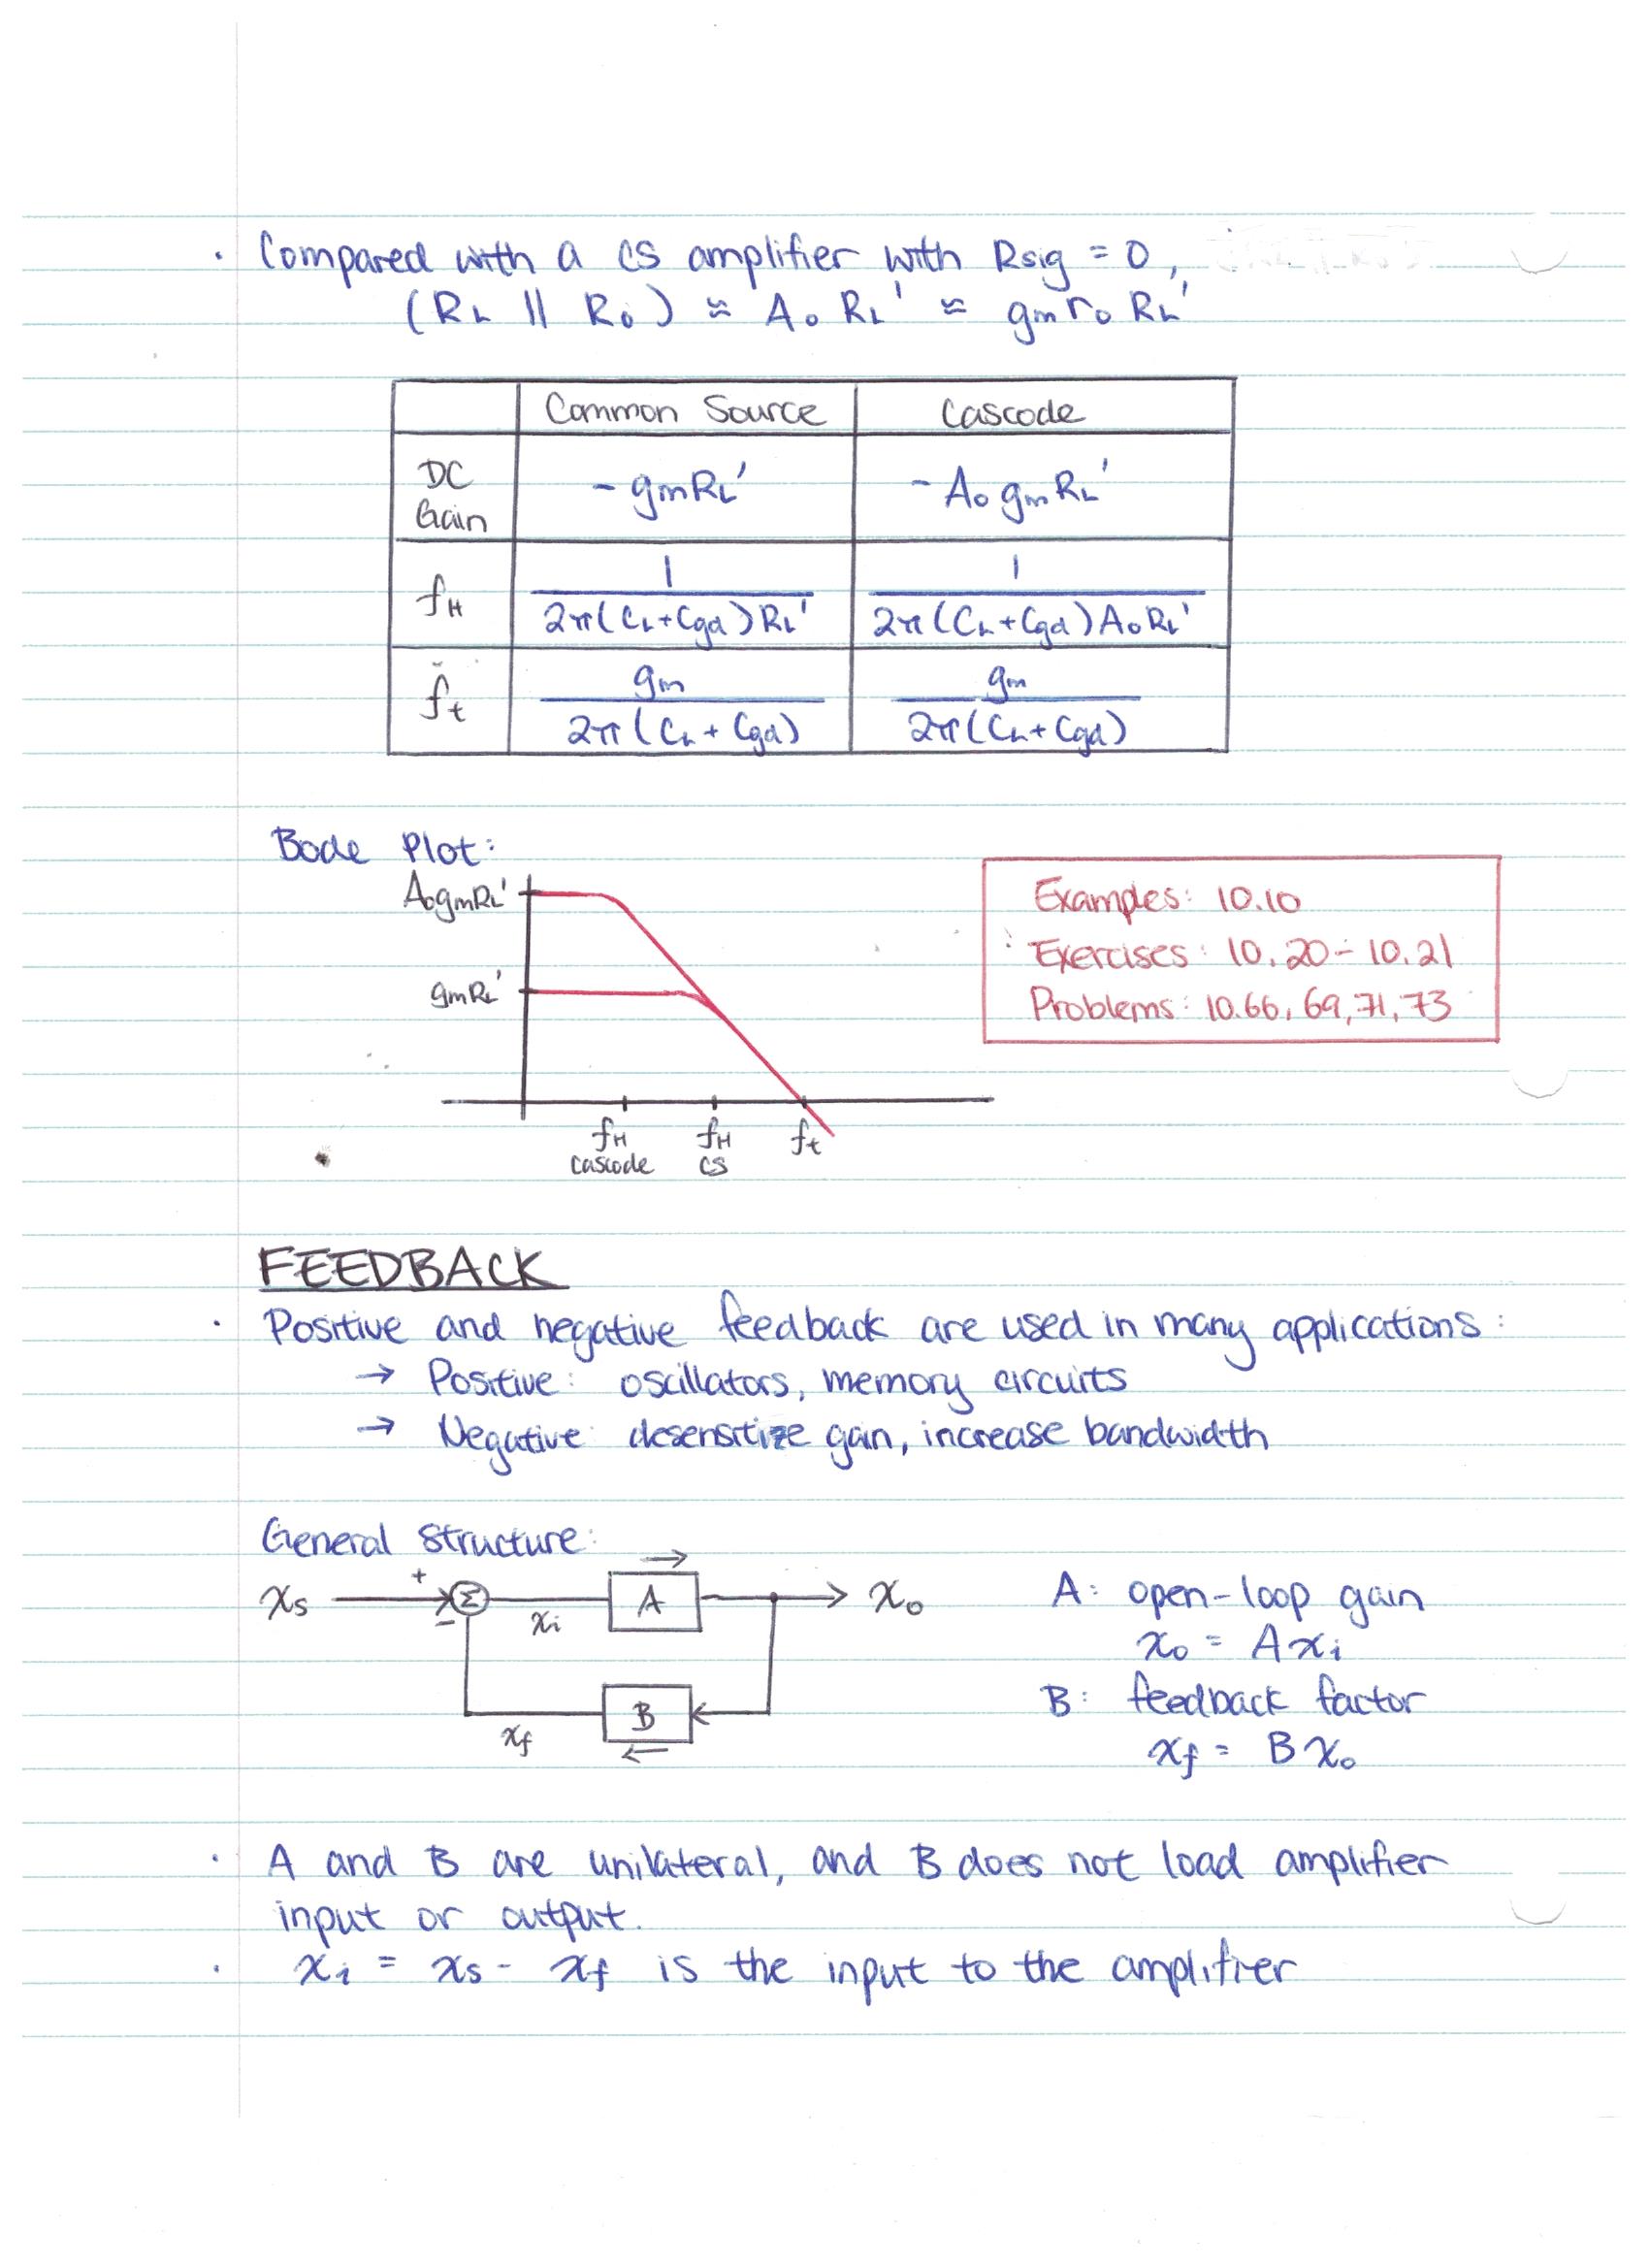 · Compared with a CS amplifier with Rsig = 0,
(RL || Ro) ≈ Ao RL' ≈ gm ro RL'
Common Source Cascode
DC Gain - gmRL' - Ao gm RL'
fH 1 / 2π(CL+Cgd)RL' 1 / 2π(CL+Cgd)AoRL'
ft gm / 2π(CL+Cgd) gm / 2π(CL+Cgd)
Bode Plot:
AogmRL'
gmRL'
fH cascode fH CS ft
Examples: 10.10
Exercises: 10.20-10.21
Problems: 10.66, 69, 71, 73
FEEDBACK
· Positive and negative feedback are used in many applications:
→ Positive: oscillators, memory circuits
→ Negative: desensitize gain, increase bandwidth
General Structure:
xs + - Σ xi A → xo
B ← xf
A: open-loop gain
xo = A xi
B: feedback factor
xf = B xo
· A and B are unilateral, and B does not load amplifier
input or output.
· xi = xs - xf is the input to the amplifier